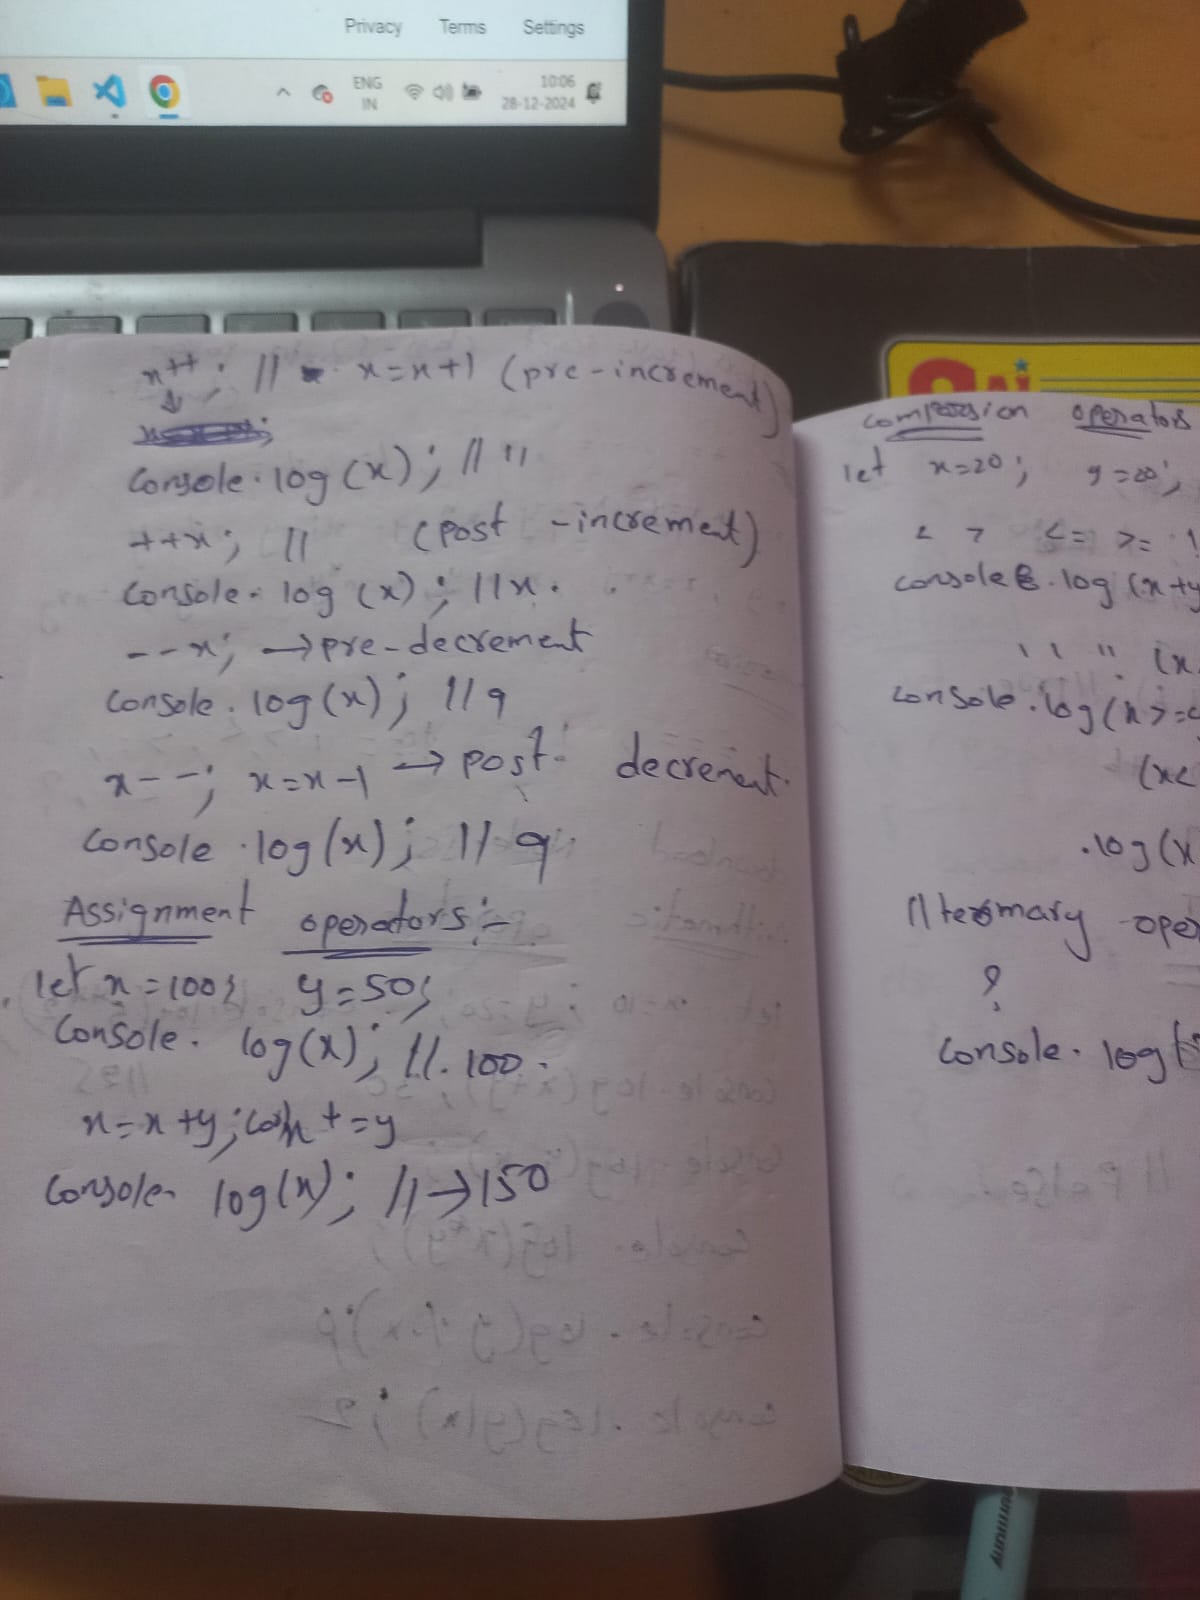 Privacy Terms Settings
ENG
IN
10:06
28-12-2024
x++; // x=x+1 (pre-increment)
Console.log(x); // 11
++x; // (post-increment)
Console.log(x); //x.
--x; →pre-decrement
Console.log(x); //9
x--; x=x-1 → post- decrement.
Console.log(x); // 9
Assignment operators:-
let x=100; y=50;
Console. log(x); //. 100.
x=x+y; x+=y
Console. log(x); //→150
operators
let x=20; y=20;
< > <= >= !
console.log(x+y
" " (x
console.log(x>=y
(x<
.log(x
//
?
console.log(